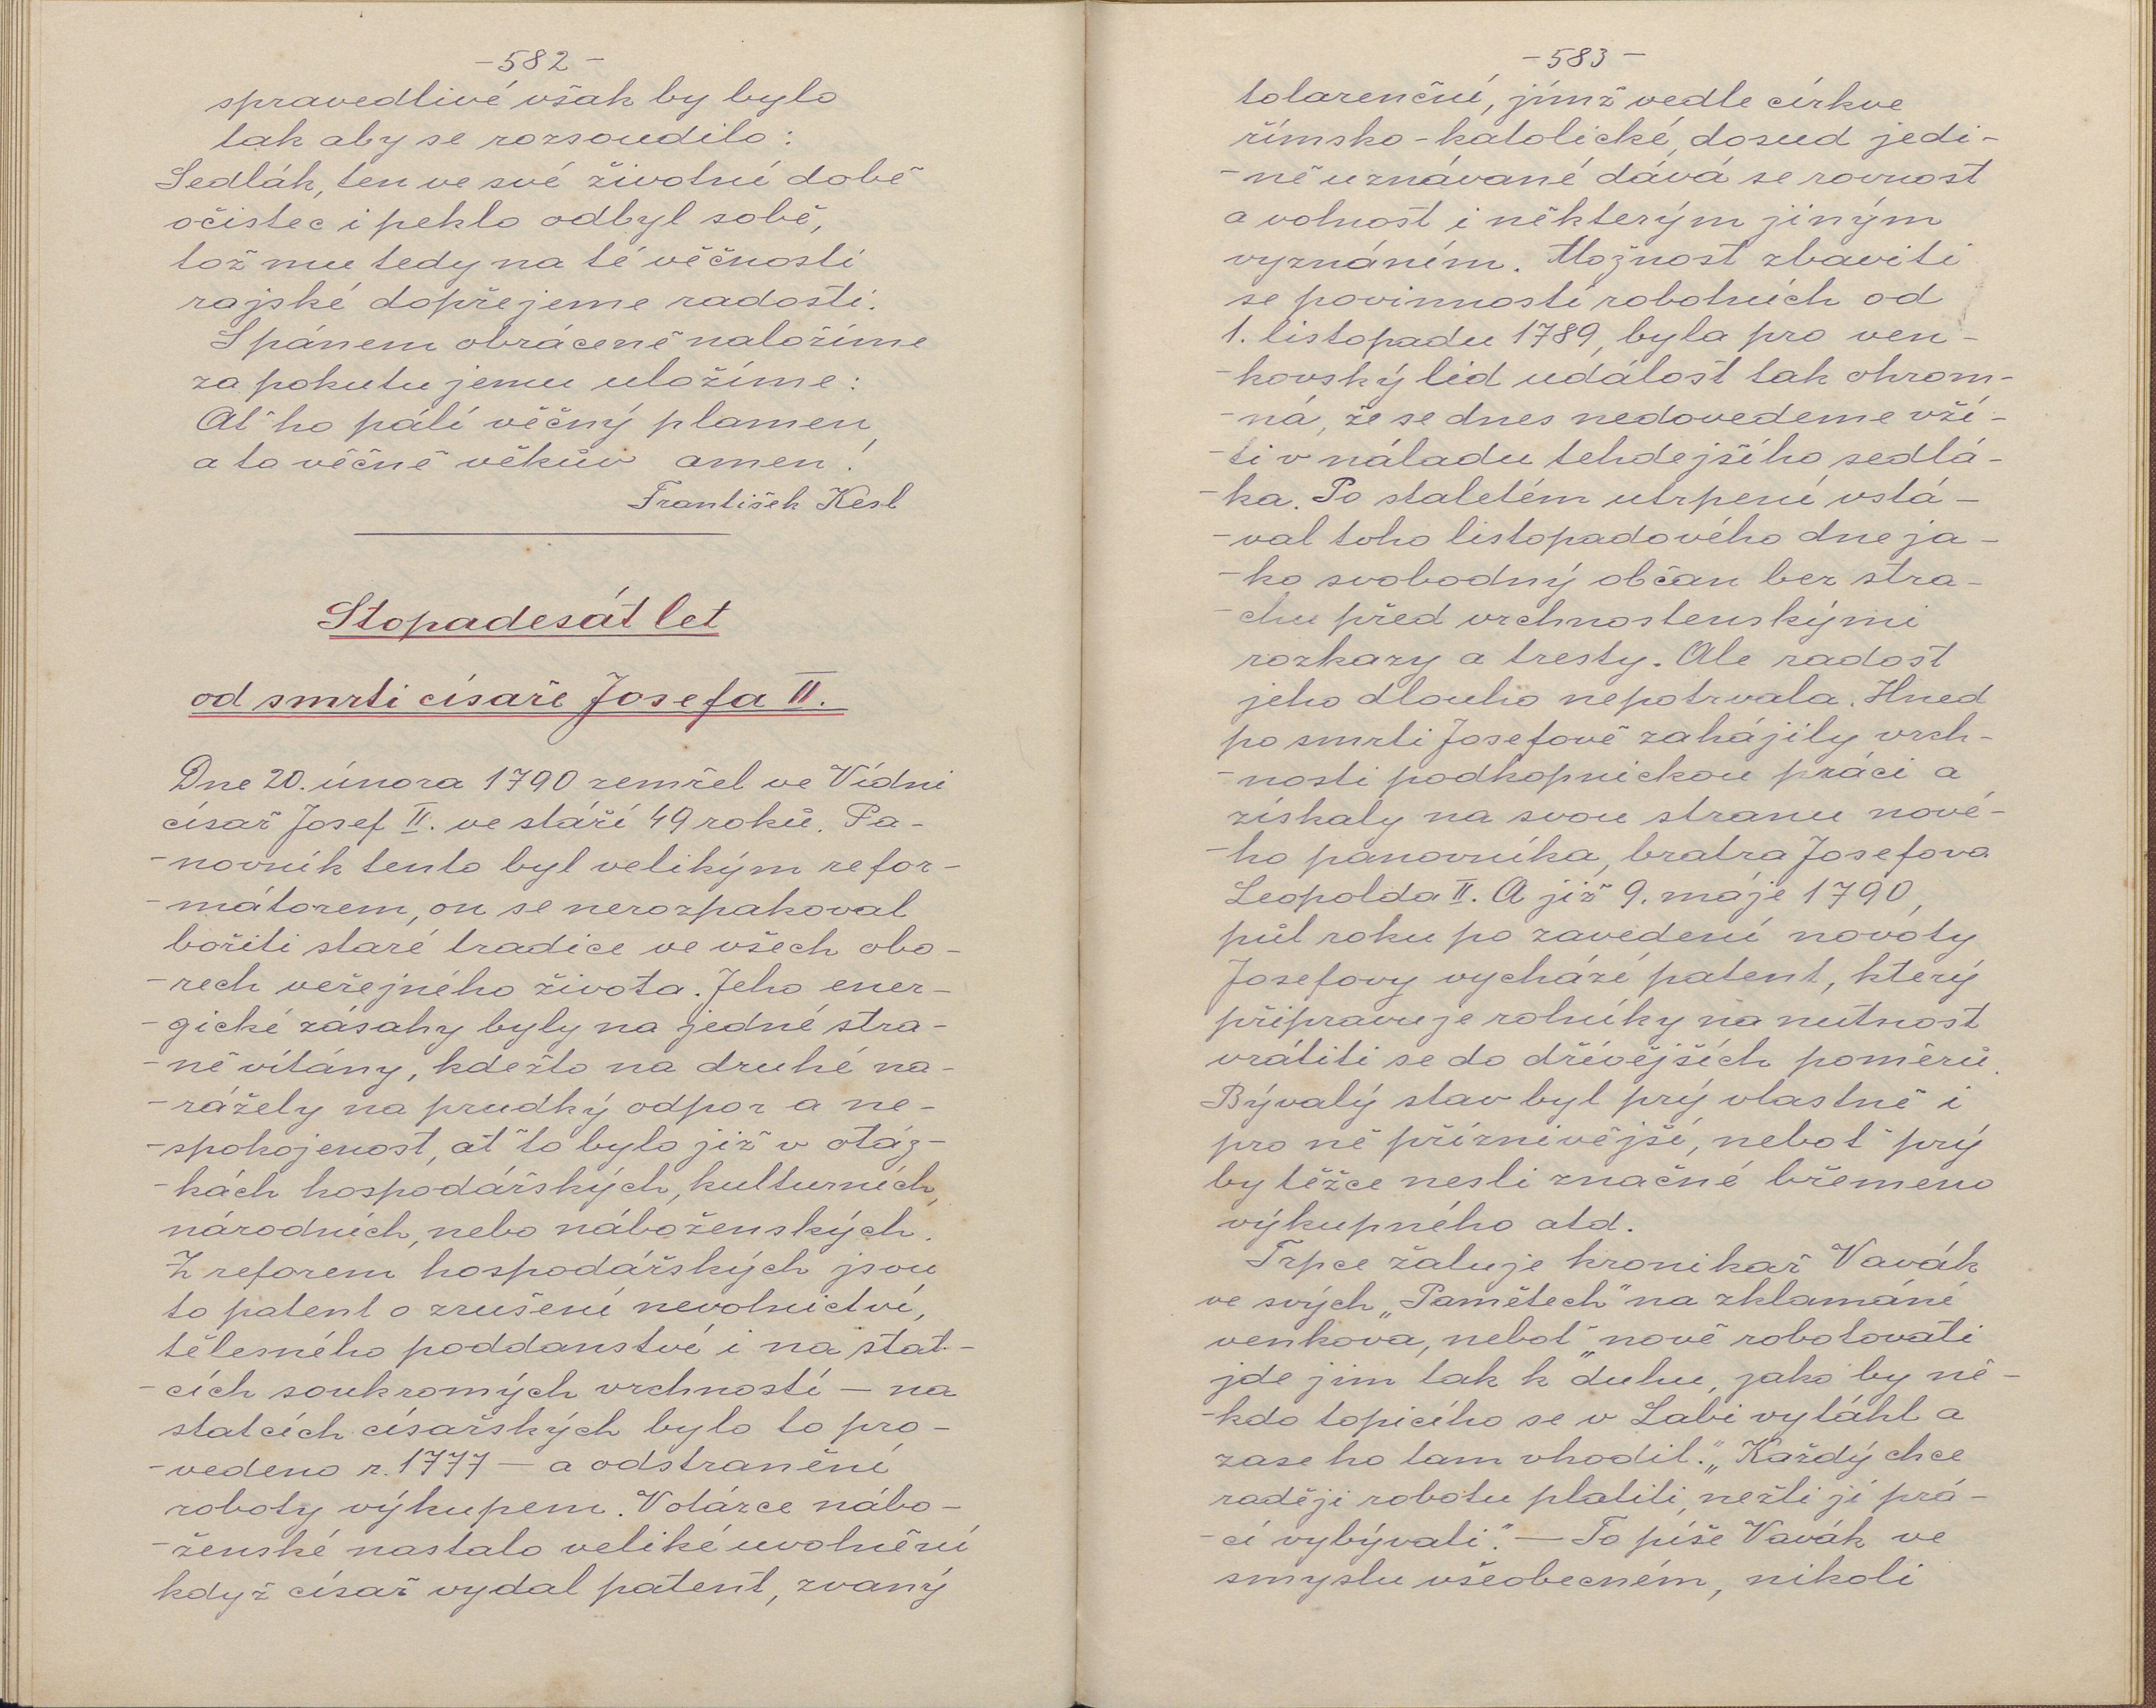 -582-
spravedlivé však by bylo
tak aby se rozsoudilo:
Sedlák, ten ve své životní době
očistec i peklo odbyl sobě,
tož mu tedy na té věčnosti
rajské dopřejeme radosti.
S pánem obráceně naložíme
za pokutu jemu uložíme:
Ať ho pálí věčný plamen,
a to věčně věkův amen!
František Kesl
Stopadesát let
od smrti císaře Josefa II.
Dne 20. února 1790 zemřel ve Vídni
císař Josef II. ve stáří 49 roků. Pa-
-novník tento byl velikým refor-
-mátorem, on se nerozpakoval
bořiti staré tradice ve všech obo-
-rech veřejného života. Jeho ener-
-gické zásahy byly na jedné stra-
-ně vítány, kdežto na druhé na-
-rážely na prudký odpor a ne-
-spokojenost, ať to bylo již v otáz-
-kách hospodářských, kulturních,
národních, nebo náboženských.
Z reforem hospodářských jsou
to patent o zrušení nevolnictví,
tělesného poddanství i na stat-
-cích soukromých vrchností — na
statcích císařských bylo to pro-
-vedeno r. 1777 — a odstranění
roboty výkupem. V otázce nábo-
-ženské nastalo veliké uvolnění
když císař vydal patent, zvaný
-583-
tolarenční, jímž vedle církve
římsko-katolické, dosud jedi-
-ně uznávané dává se rovnost
a volnost i některým jiným
vyznáním. Možnost zbaviti
se povinností robotních od
1. listopadu 1789, byla pro ven-
-kovský lid událost tak ohrom-
-ná, že se dnes nedovedeme vží-
-ti v náladu tehdejšího sedlá-
-ka. Po staletém utrpení vstá-
-val toho listopadového dne ja-
-ko svobodný občan bez stra-
-chu před vrchnostenskými
rozkazy a tresty. Ale radost
jeho dlouho nepotrvala. Hned
po smrti Josefově zahájily vrch-
-nosti podkopnickou práci a
získaly na svou stranu nové-
-ho panovníka, bratra Josefova
Leopolda II. A již 9. máje 1790,
půl roku po zavedení novoty
Josefovy vychází patent, který
připravuje rolníky na nutnost
vrátiti se do dřívějších poměrů.
Bývalý stav byl prý vlastně i
pro ně příznivější, neboť prý
by těžce nesli značné břemeno
výkupného atd.
Trpce žaluje kronikař Vavák
ve svých „Pamětech" na zklamání
venkova, neboť „nově robotovati
jde jim tak k duhu, jako by ně-
-kdo topícího se v Labi vytáhl a
zase ho tam vhodil." „Každý chce
raději robotu platiti, nežli ji prá-
-cí vybývati." — To píše Vavák ve
smyslu všeobecném, nikoli